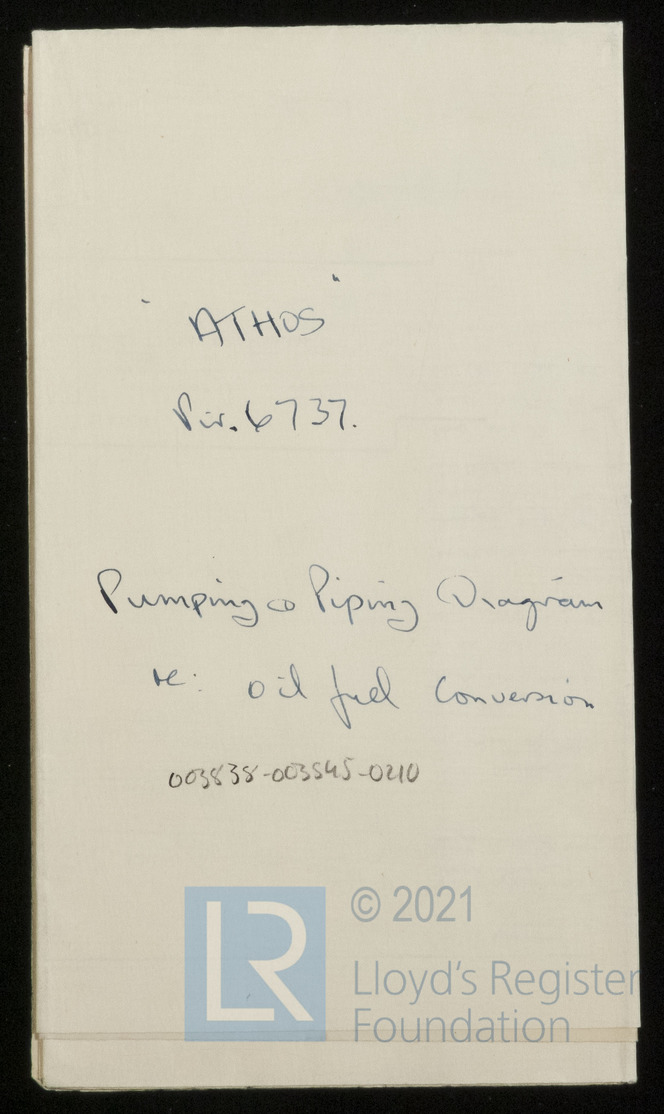 "ATHOS"
Pir. 6737.
Pumping & Piping Diagram
re: oil fuel Conversion
003838-003845-0210
LR
© 2021
Lloyd's Register
Foundation